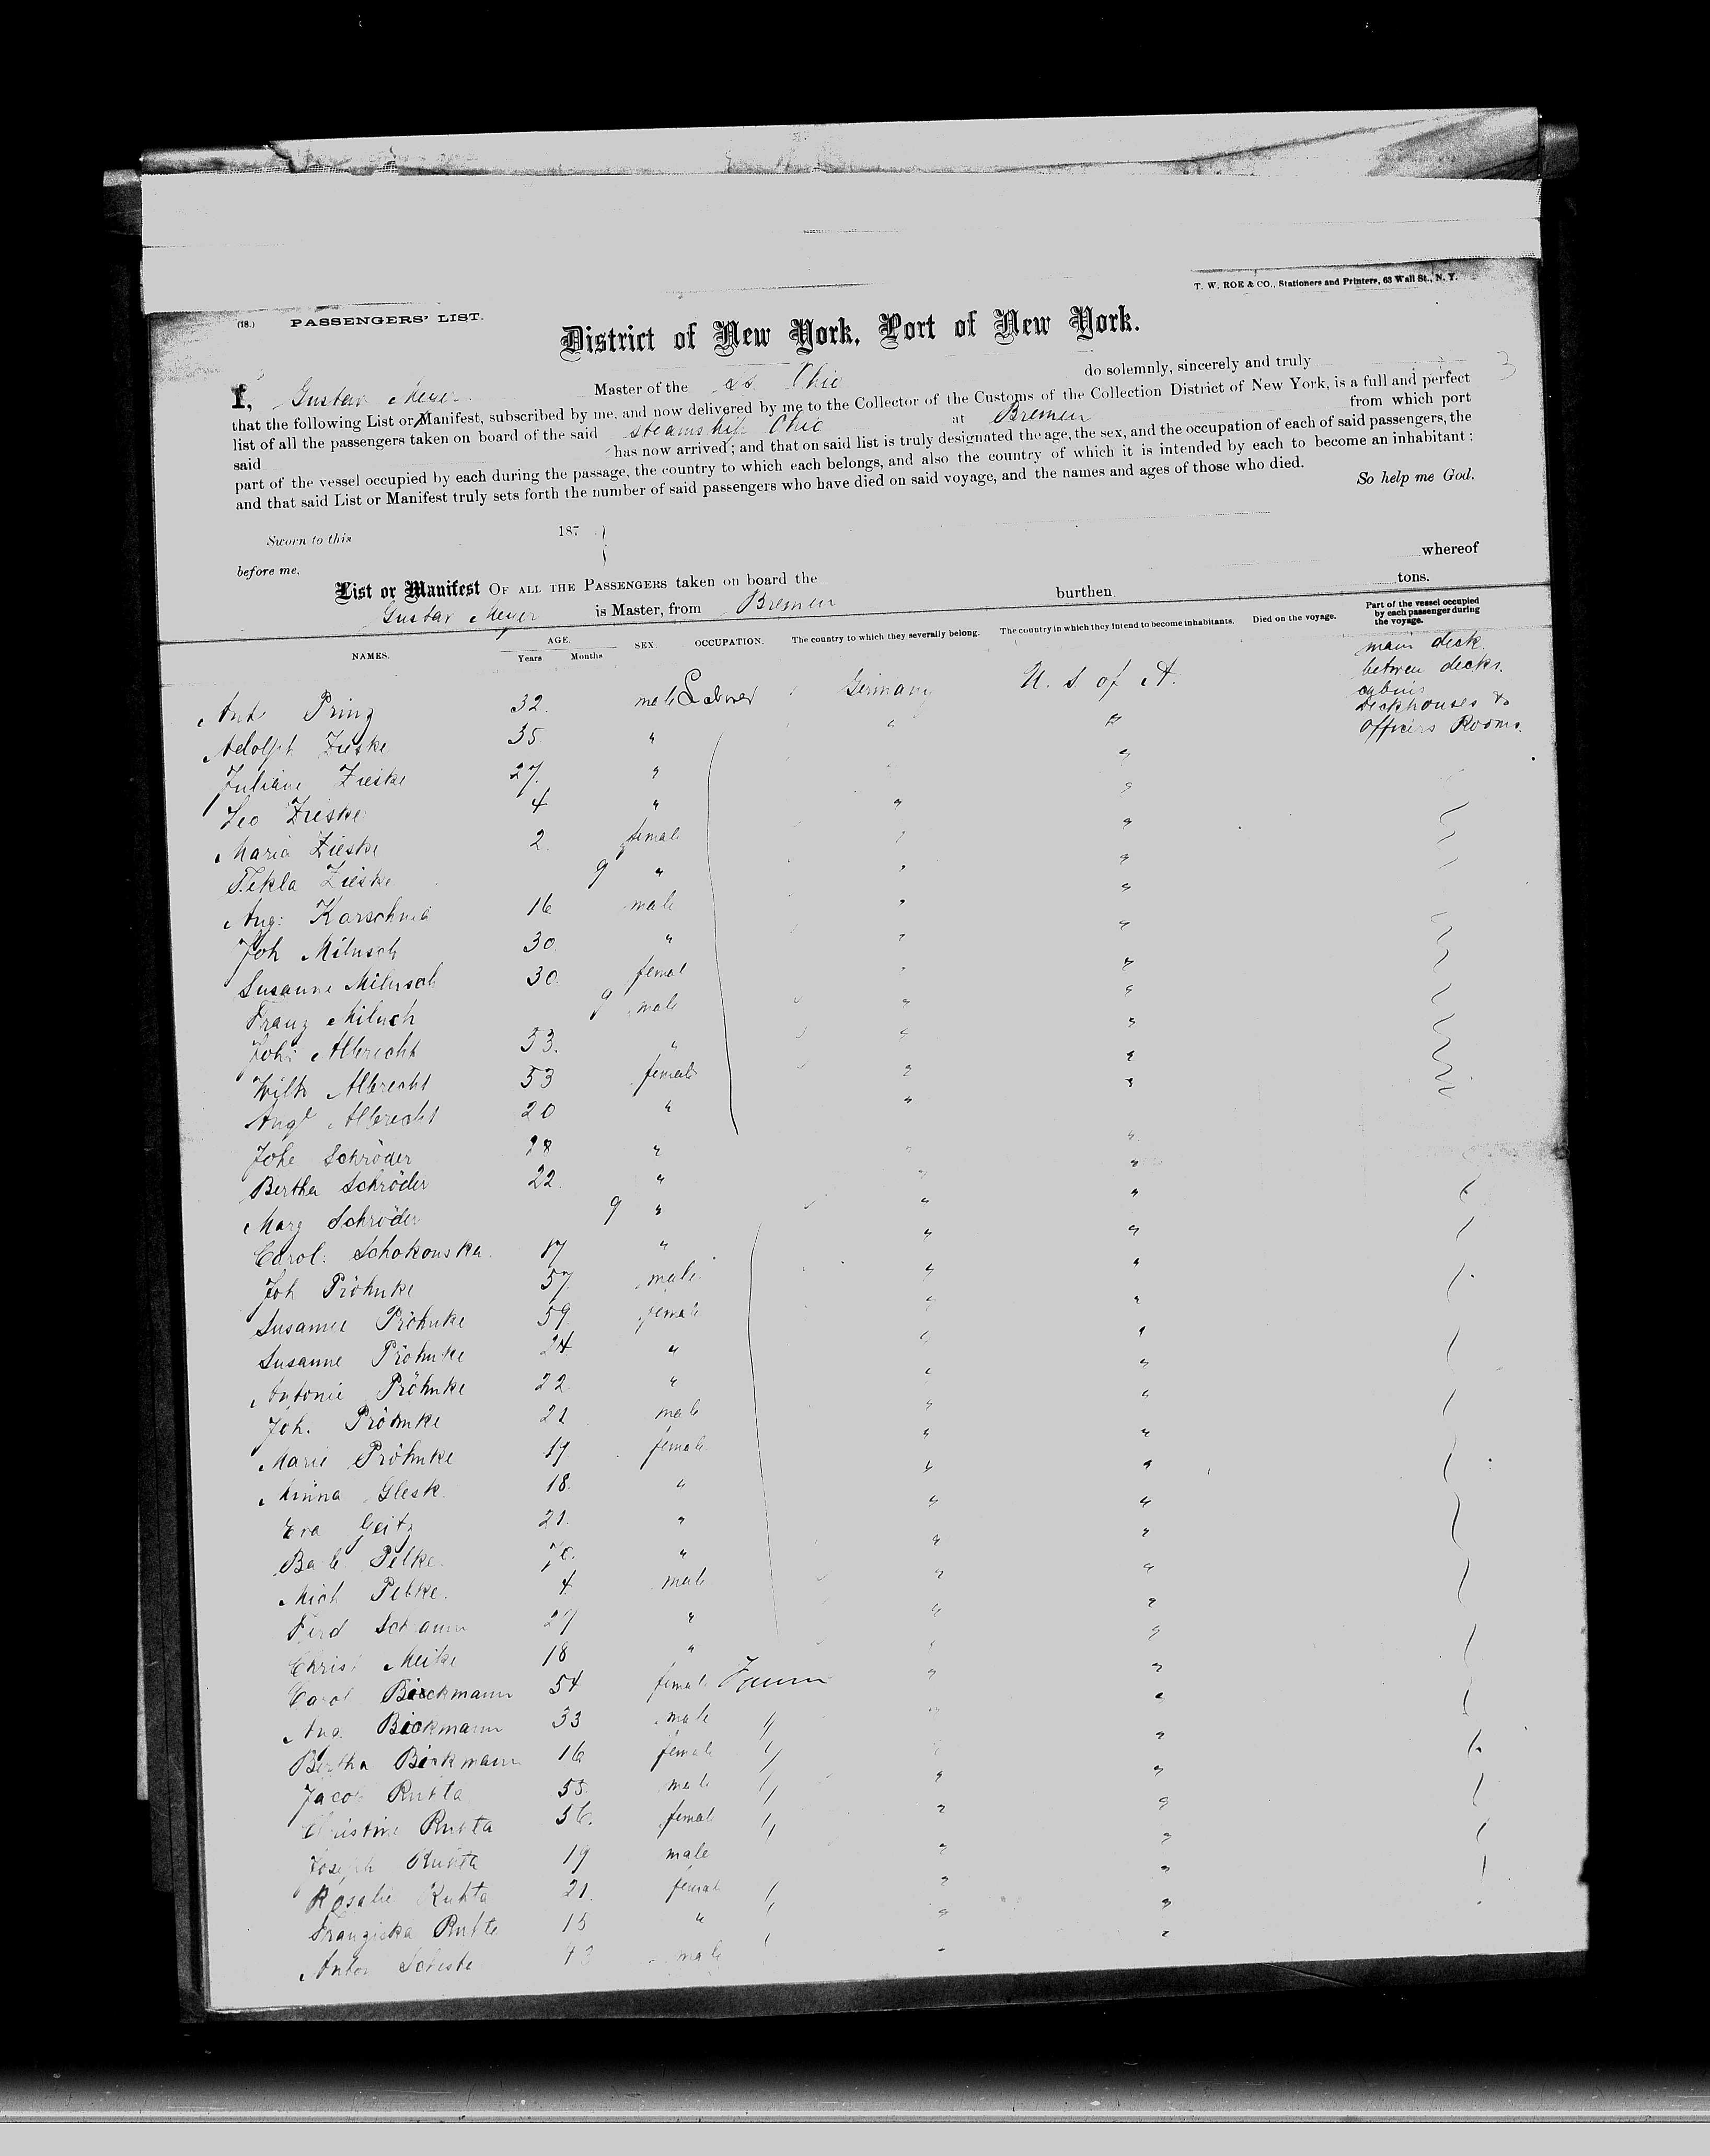 T. W. ROE & CO., Stationers and Printers, 63 Wall St., N. Y.
(18.) PASSENGERS' LIST.
District of New York, Port of New York.
I, Gustav Meyer Master of the ss Ohio do solemnly, sincerely and truly
that the following List or Manifest, subscribed by me, and now delivered by me to the Collector of the Customs of the Collection District of New York, is a full and perfect
list of all the passengers taken on board of the said steamship Ohio at Bremen from which port
said has now arrived; and that on said list is truly designated the age, the sex, and the occupation of each of said passengers, the
part of the vessel occupied by each during the passage, the country to which each belongs, and also the country of which it is intended by each to become an inhabitant;
and that said List or Manifest truly sets forth the number of said passengers who have died on said voyage, and the names and ages of those who died.
So help me God.
Sworn to this 187
before me,
whereof
List or Manifest OF ALL THE PASSENGERS taken on board the
Gustav Meyer is Master, from Bremen burthen. tons.
NAMES. AGE. Years Months SEX. OCCUPATION. The country to which they severally belong. The country in which they intend to become inhabitants. Died on the voyage. Part of the vessel occupied by each passenger during the voyage.
main deck
betwen decks.
cabins
deckhouses &
officers Rooms.
Ant Prinz 32. male Laborer Germany U. S of A.
Adolph Zieske 35. " " "
Juliane Zieske 27. " "
Leo Zieske 4 " " "
Maria Zieske 2. female " "
Tekla Zieske 9 " " "
Aug: 16 male " "
Joh Milusch 30. " " "
Susanne Milusch 30. femal " "
Franz Miluch 9 male " "
Joh: Albrecht 53. " " "
Wilh Albrecht 53 female " "
Aug Albrecht 20 " " "
Johe Schröder 28 " " "
Bertha Schröder 22. " " "
Marg Schröder 9 " " "
Carol: Schokonska 17 " " "
Joh Pröhnke 57 male " "
Susanne Pröhnke 59. female " "
Susanne Pröhnke 24 " " "
Antonie Pröhnke 22. " " "
Joh. Pröhnke 21 male " "
Marie Pröhnke 19 female " "
Minna Glesk 18. " " "
Eva Geitz 21. " " "
Pelke. " " "
Mich Pelke. 4 male " "
Ferd 27 " " "
Christ Meike 18 " " "
Carol Bieckmann 54 female " "
Aug. Bieckmann 33 male " " "
Bertha Bieckmann 16 female " " "
Jacob 55. male " " "
Christine 56. female " " "
Joseph 19 male " "
Rosalie 21. female " " "
Franziska 15 " " " "
Anton male " "